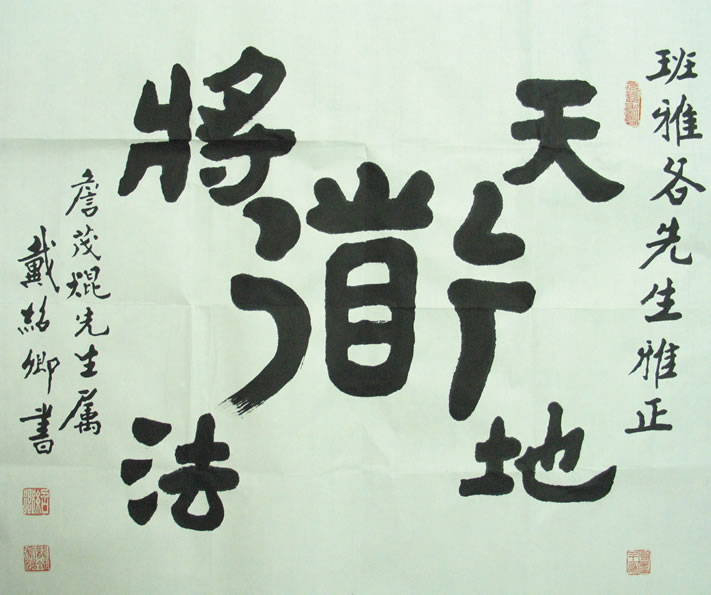 班雅各先生雅正
天地
衜
將法
詹茂焜先生属
戴紹卿書